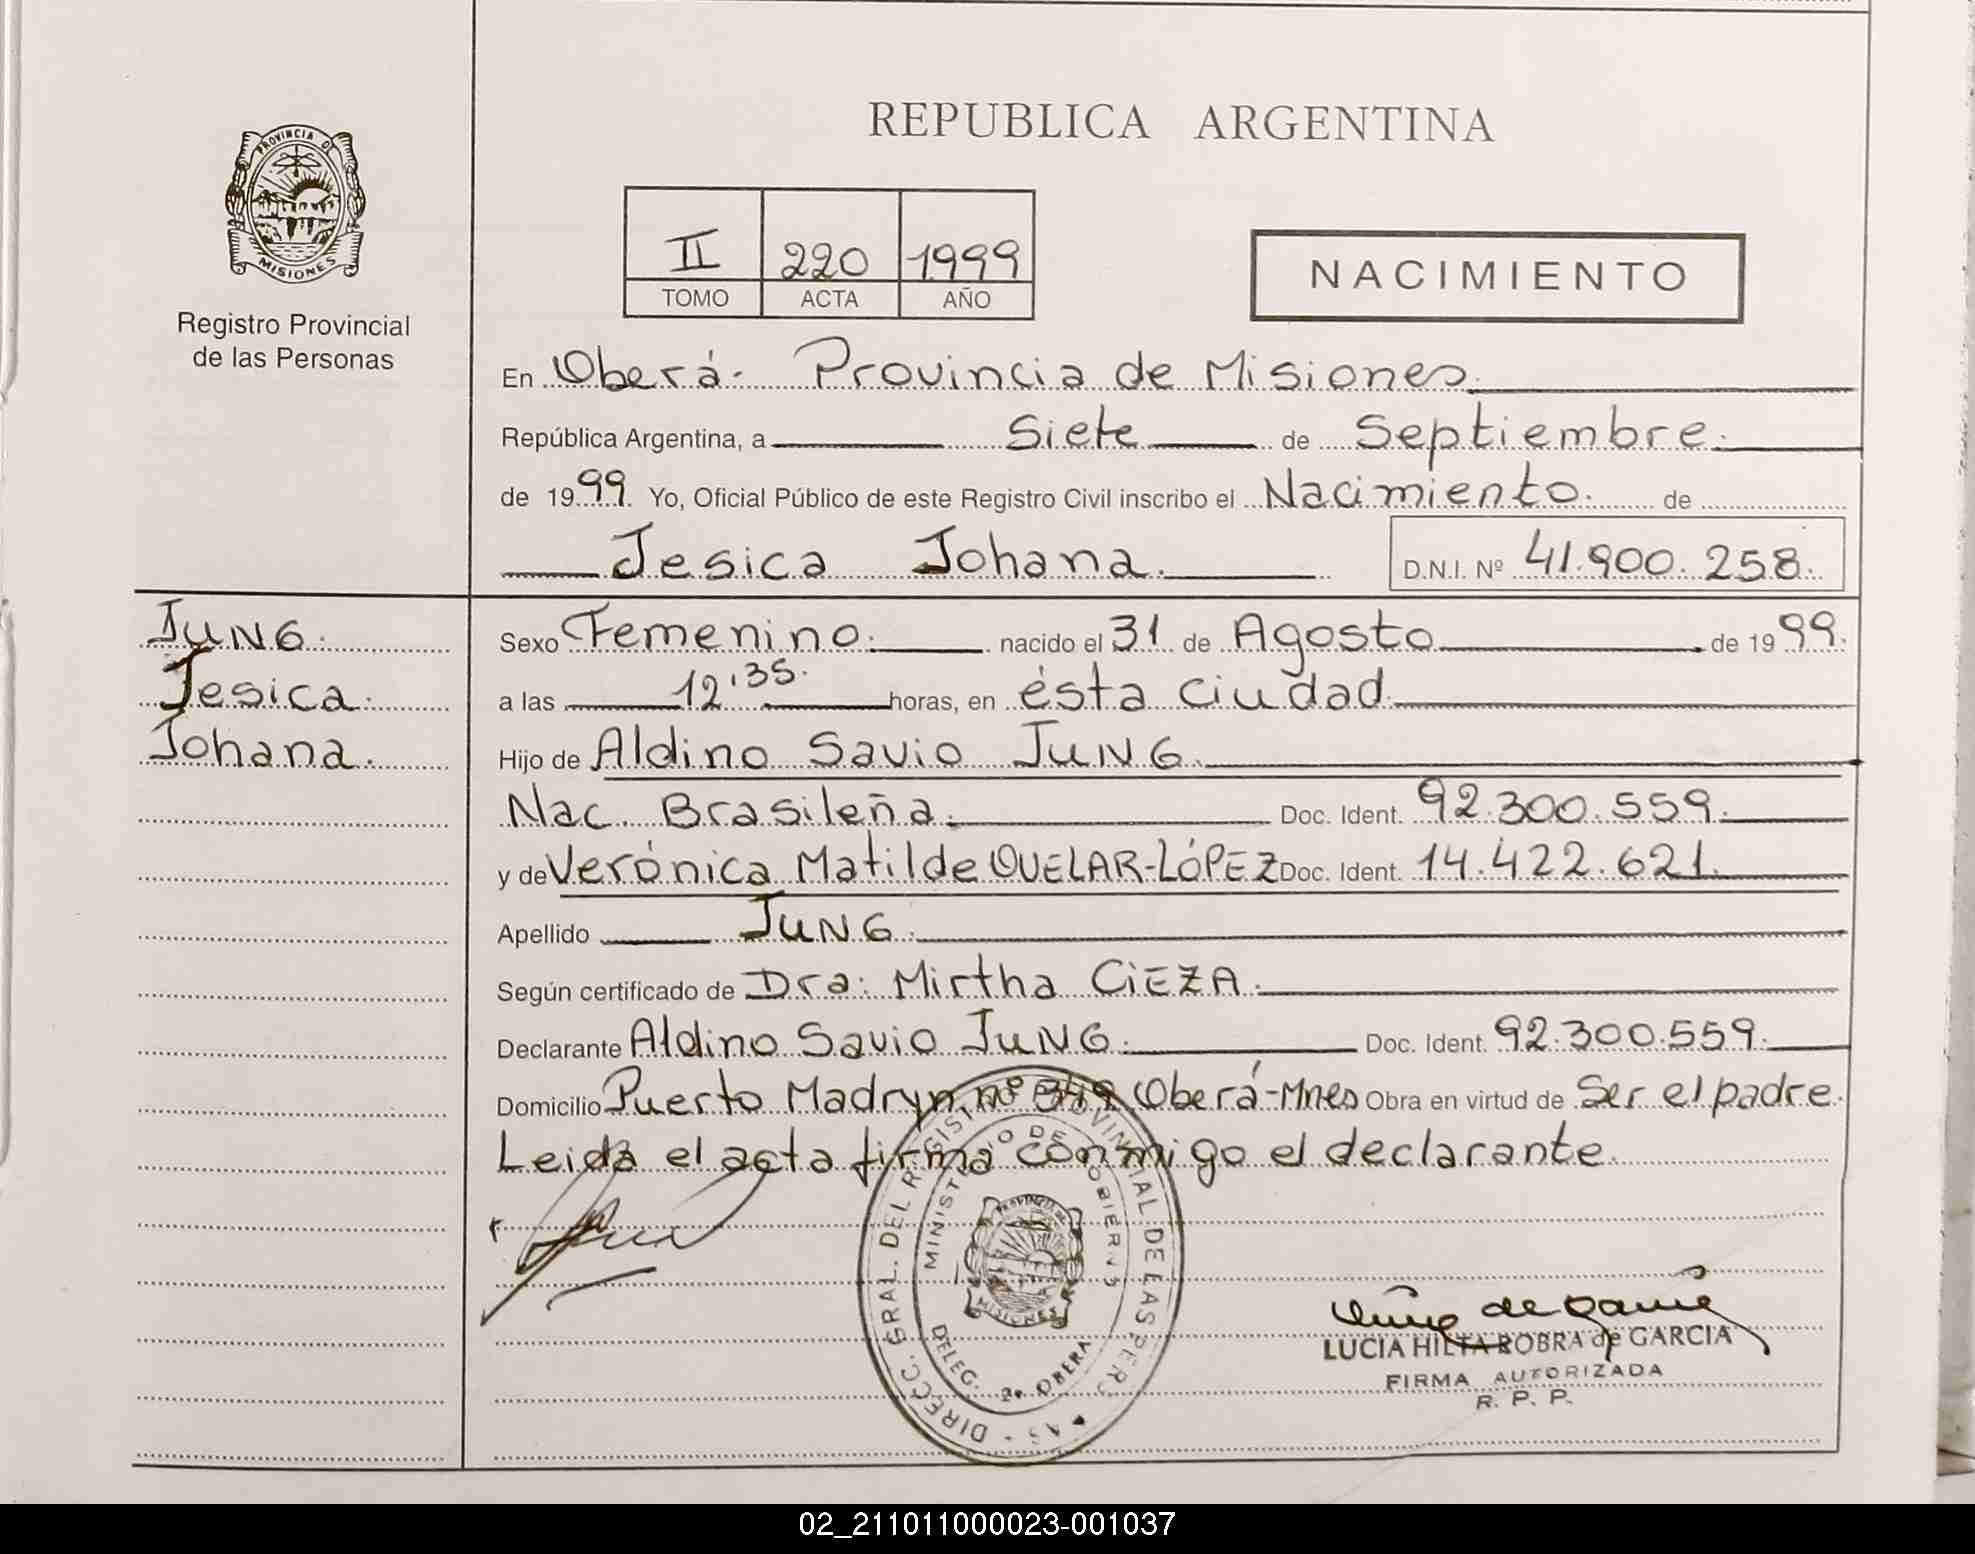 PROVINCIA DE
MISIONES
Registro Provincial
de las Personas
JUNG.
Jesica.
Johana.
REPUBLICA ARGENTINA
II 220 1999
TOMO ACTA AÑO
NACIMIENTO
En Oberá. Provincia de Misiones.
República Argentina, a Siete de Septiembre.
de 1999. Yo, Oficial Público de este Registro Civil inscribo el Nacimiento. de
Jesica Johana. D.N.I. Nº 41.900.258.
Sexo Femenino. nacido el 31 de Agosto de 1999.
a las 12'35. horas, en ésta ciudad
Hijo de Aldino Savio JUNG.
Nac. Brasileña. Doc. Ident. 92.300.559.
y de Verónica Matilde OVELAR-LÓPEZ Doc. Ident. 14.422.621.
Apellido JUNG.
Según certificado de Dra: Mirtha CIEZA.
Declarante Aldino Savio JUNG. Doc. Ident. 92.300.559.
Domicilio Puerto Madryn nº Oberá-Mnes Obra en virtud de Ser el padre.
Leida el acta firma conmigo el declarante.
DIRECC. GRAL. DEL REGIST. PROVINCIAL DE LAS PERS
MINISTERIO DE GOBIERNO
PROVINCIA DE
MISIONES
DELEG. 2ª OBERA
LUCIA HILTA ROBRA de GARCIA
FIRMA AUTORIZADA
R. P. P.
02_211011000023-001037